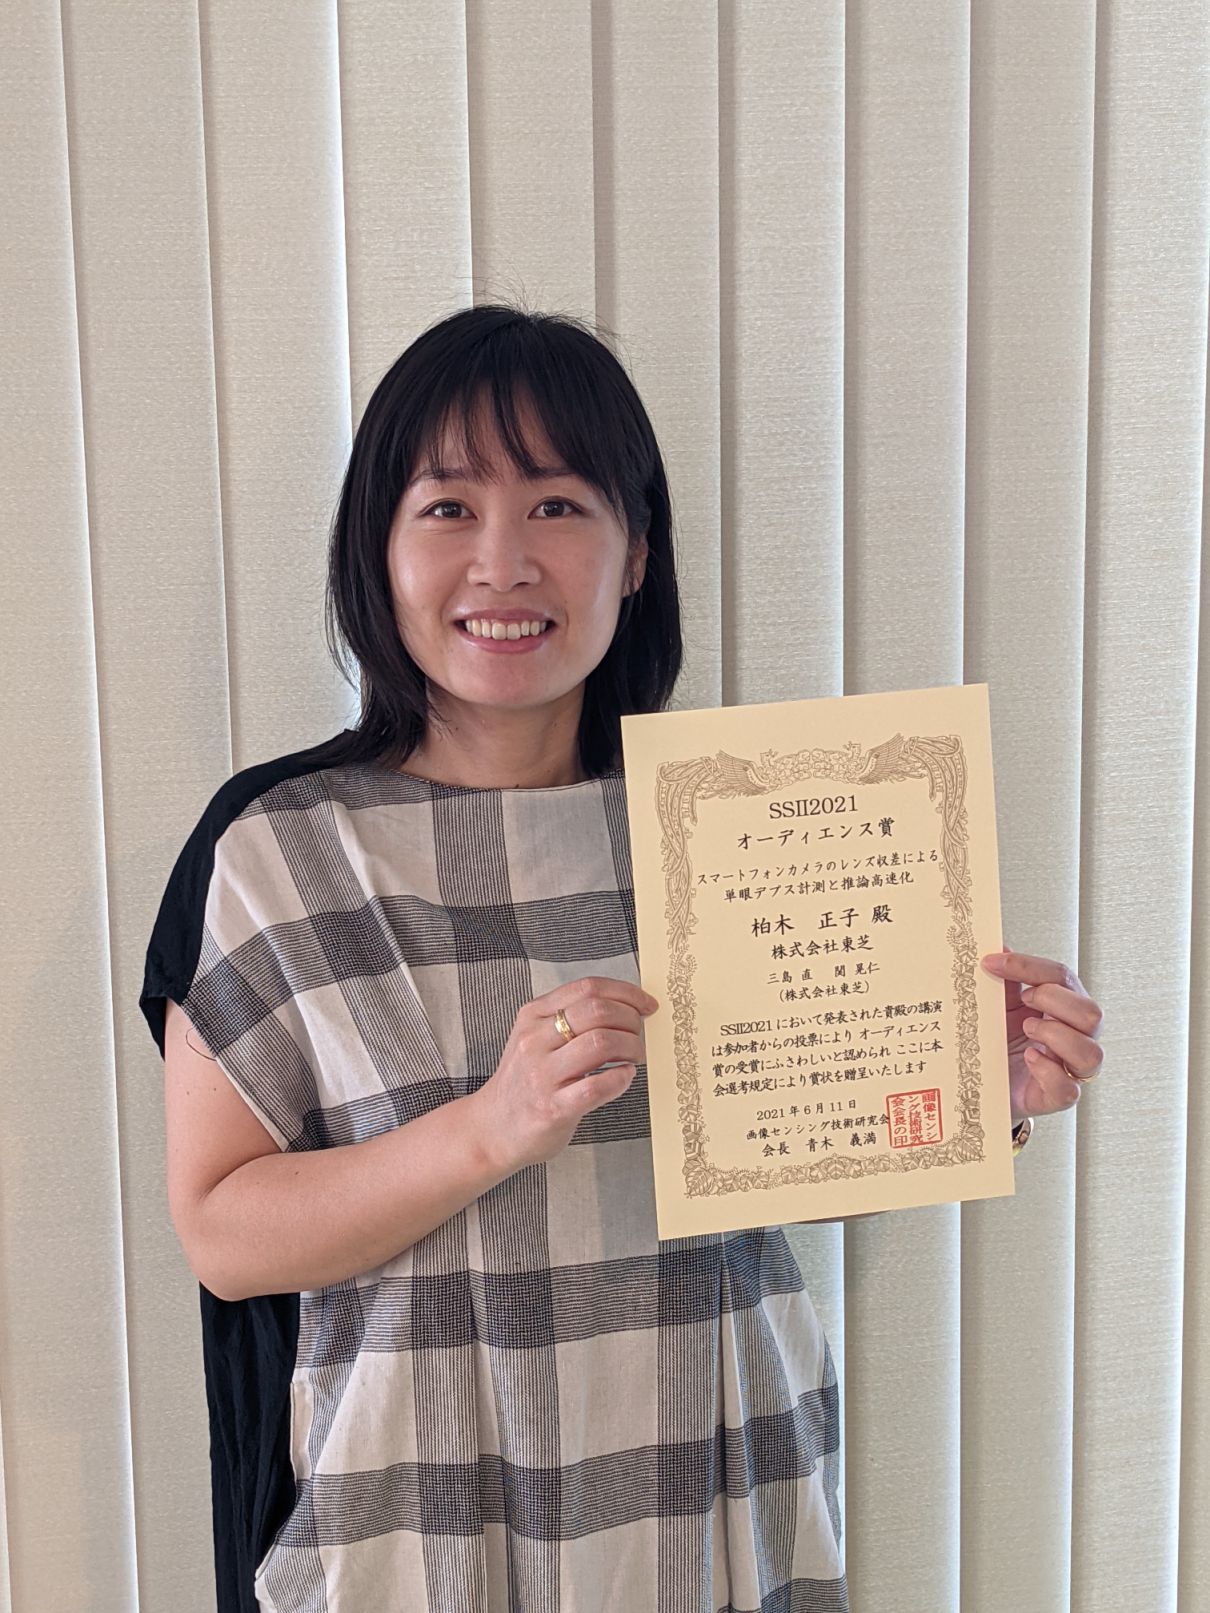 SSII2021
オーディエンス賞
スマートフォンカメラのレンズ収差による
単眼デプス計測と推論高速化
柏木　正子 殿
株式会社東芝
三島 直　関 晃仁
(株式会社東芝)
SSII2021 において発表された貴殿の講演
は参加者からの投票により オーディエンス
賞の受賞にふさわしいと認められ ここに本
会選考規定により賞状を贈呈いたします
2021 年 6 月 11 日
画像センシング技術研究会
会長　青木　義満
画像センシ
ング技術研究
会会長の印